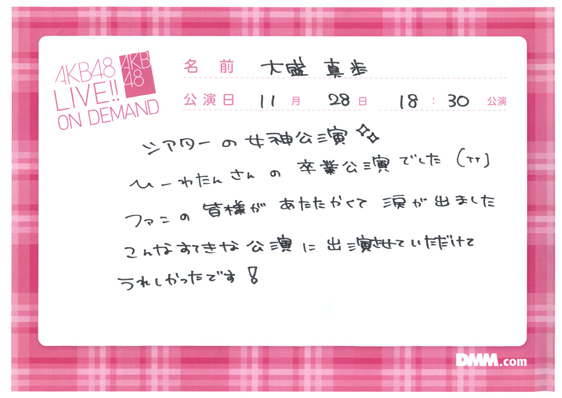 AKB48
LIVE!!
ON DEMAND
AKB
48
名前 大盛 真歩
公演日 11月 28日 18:30 公演
シアターの女神公演
ひーわたんさんの 卒業公演でした (TT)
ファンの 皆様が あたたかくて 涙が出ました
こんなすてきな 公演に 出演させていただけて
うれしかったです!
DMM.com